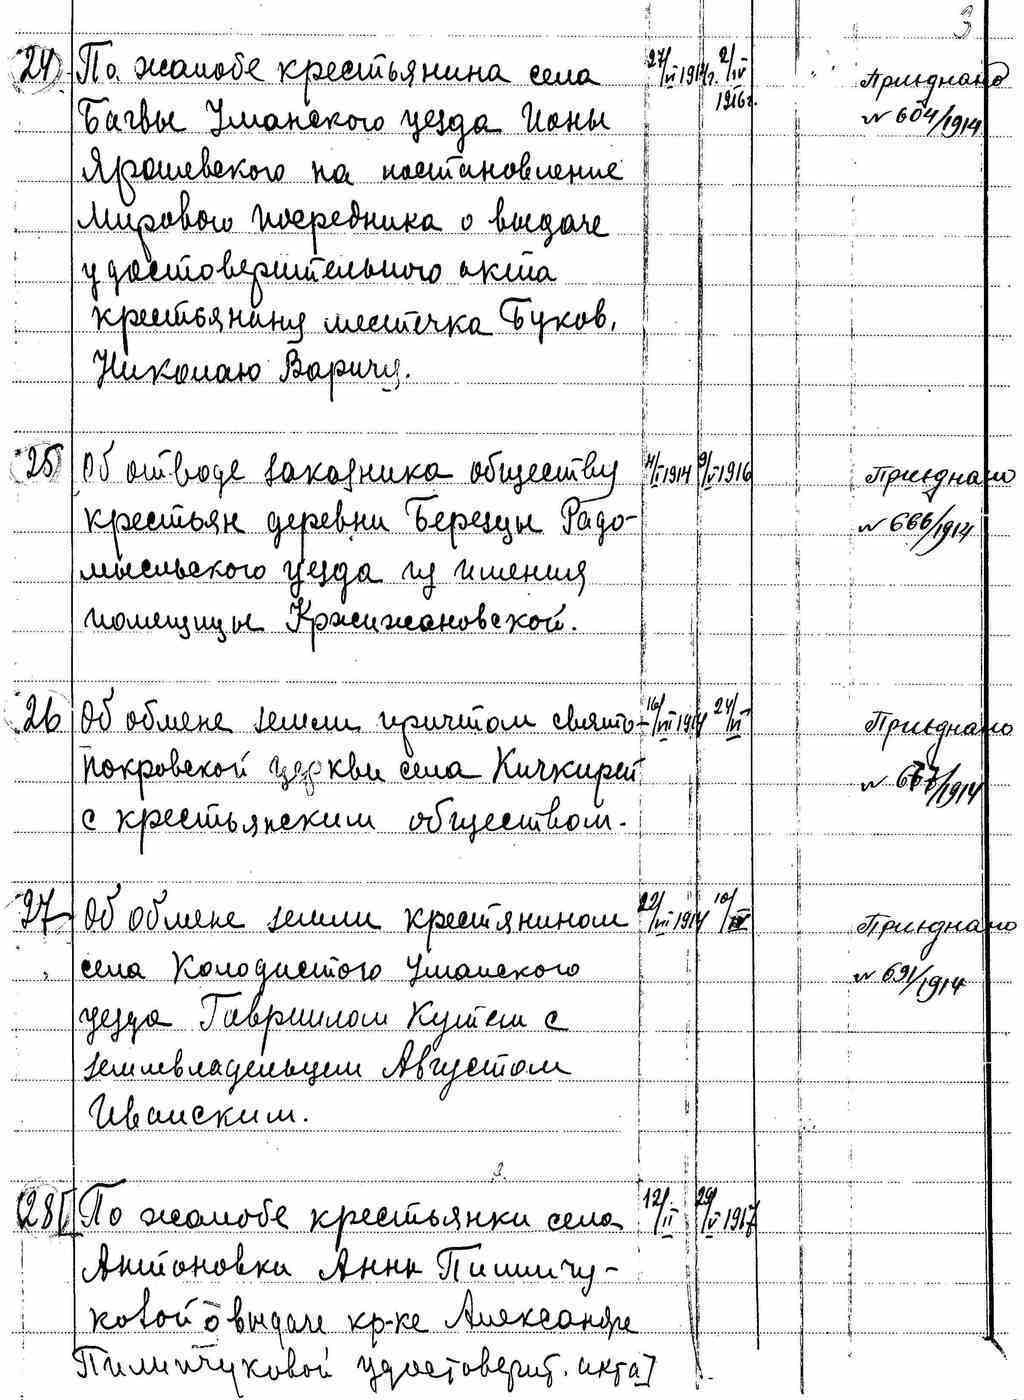 3
24 По жалобе крестьянина села 27/VI 1914г. 2/IV 1916г. Приєднано
Багвы Уманского уезда Ионы № 604/1914
Ярошевского на постановление
Мирового посредника о выдаче
удостоверительного акта
крестьянину местечка Буков,
Николаю Варичу.
25 Об отводе заказника обществу 4/II 1914 9/V 1916 Приєднано
крестьян деревни Березцы Радо- № 666/1914
мысльского уезда из имения
помещицы Кржижановской.
26 Об обмене земли причтом свято- 16/VII 1914 24/VI Приєднано
Покровской церкви села Кичкирей № 677/1914
с крестьянским обществом.
27 Об обмене земли крестянином 22/VII 1914 10/IV Приєднано
села Колодистого Уманского № 691/1914
уезда Гавриилом Кутем с
землевладельцем Августом
Иванским.
28 [По жалобе крестьянки села 12/II 29/V 1917
Антоновки Анны Пилипчу-
ковой о выдаче кр-ке Александре
Пилипчуковой удостоверит. акта]